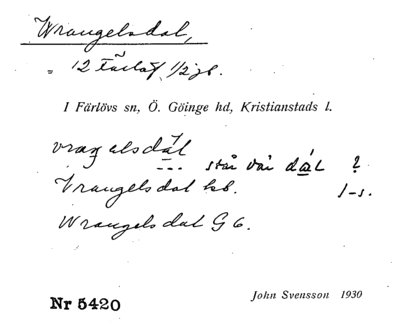 Wrangelsdal,
= 12 Färlöv 1/2 jb.
I Färlövs sn, Ö. Göinge hd, Kristianstads l.
vraŋelsdál
... står vår dál ?
Vrangelsdal kb. 1-s.
Wrangelsdal G6.
Nr 5420
John Svensson 1930